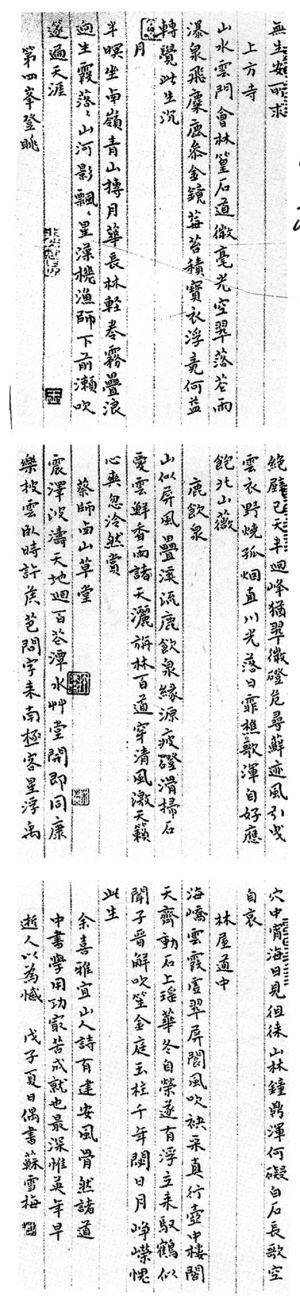 無生安可求
上方寺
山水雲門會林篁石道微毫光空翠落花雨
瀑泉飛麋鹿參金鏡莓苔積寶衣浮竟何益
轉覺此生沉
月
半暝坐南嶺青山摶月華長林輕卷霧疊浪
迥生霞落落山河影飄飄星漢槎漁師下前瀨吹
遂過天涯
第四峯登眺
絕壁已天半迴峰猶翠微磴危尋蘚迹風引曳
雲衣野燒孤烟直川光落日霏樵歌渾自好應
飽北山薇
鹿飲泉
山似屏風疊溪流鹿飲泉緣源疲磴滑掃石
愛雲鮮香雨諸天灑旃林百道穿清風激天籟
心與忽泠然賞
蔡師西山草堂
震澤波濤天地迴百花潭水艸堂開即同康
樂披雲臥時許侯芭問字來南極客星浮禹
穴中宵海日見徂徠山林鐘鼎渾何礙白石長歌空
自哀
林屋道中
海嶠雲霞雲翠屏閬風吹袂采真行壺中樓閣
天齊動石上瑤華冬自榮遂有浮丘来馭鶴似
聞子晉解吹笙金庭玉柱千年閟日月崢嶸愧
此生
余喜雅宜山人詩有建安風骨然諸道
中書學用功最苦成就也最深惟英年早
逝人以為憾 戊子夏日偶書蘇雪梅